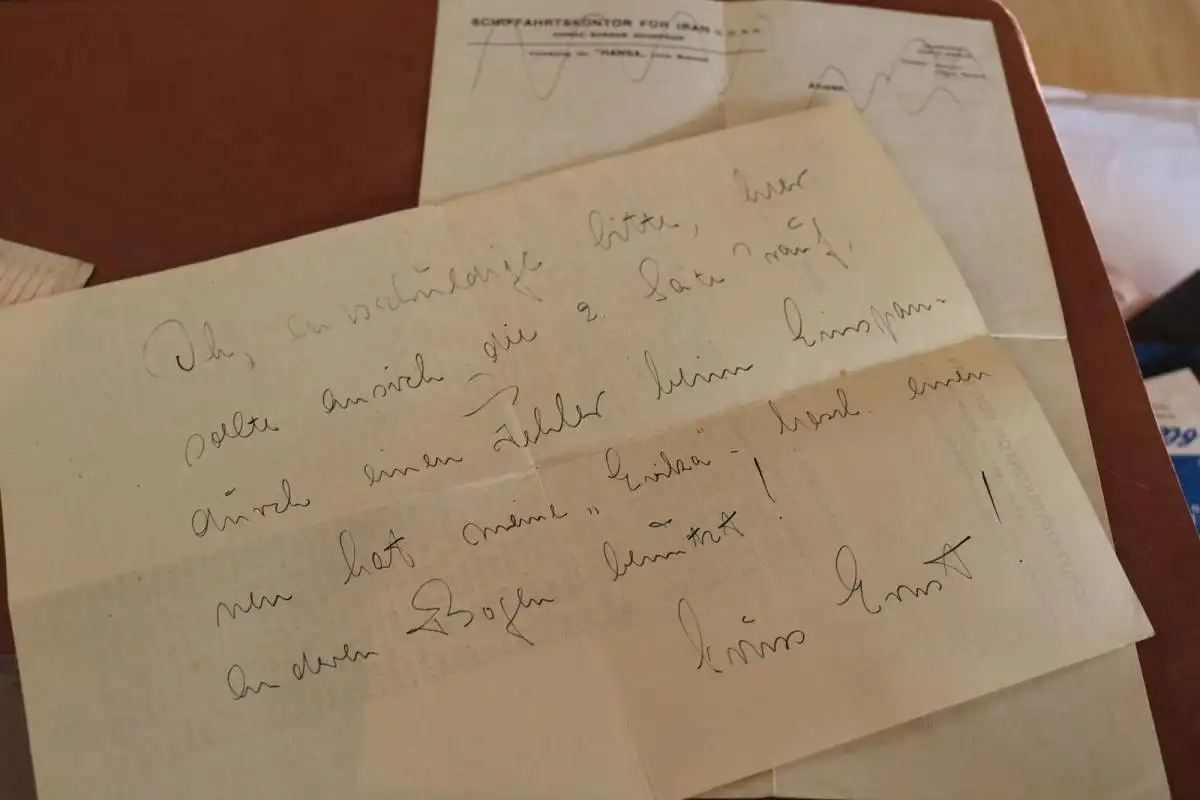 SCHIFFAHRTSKONTOR FÜR IRAN G.m.b.H.
"HANSA"
Oh, entschuldige bitte, hier
sollte ansich die 2. Seite rauf,
durch einen Fehler beim Einspan-
nen hat meine „Erika“ - hast einen
anderen Bogen benützt!
Gruss Ernst!